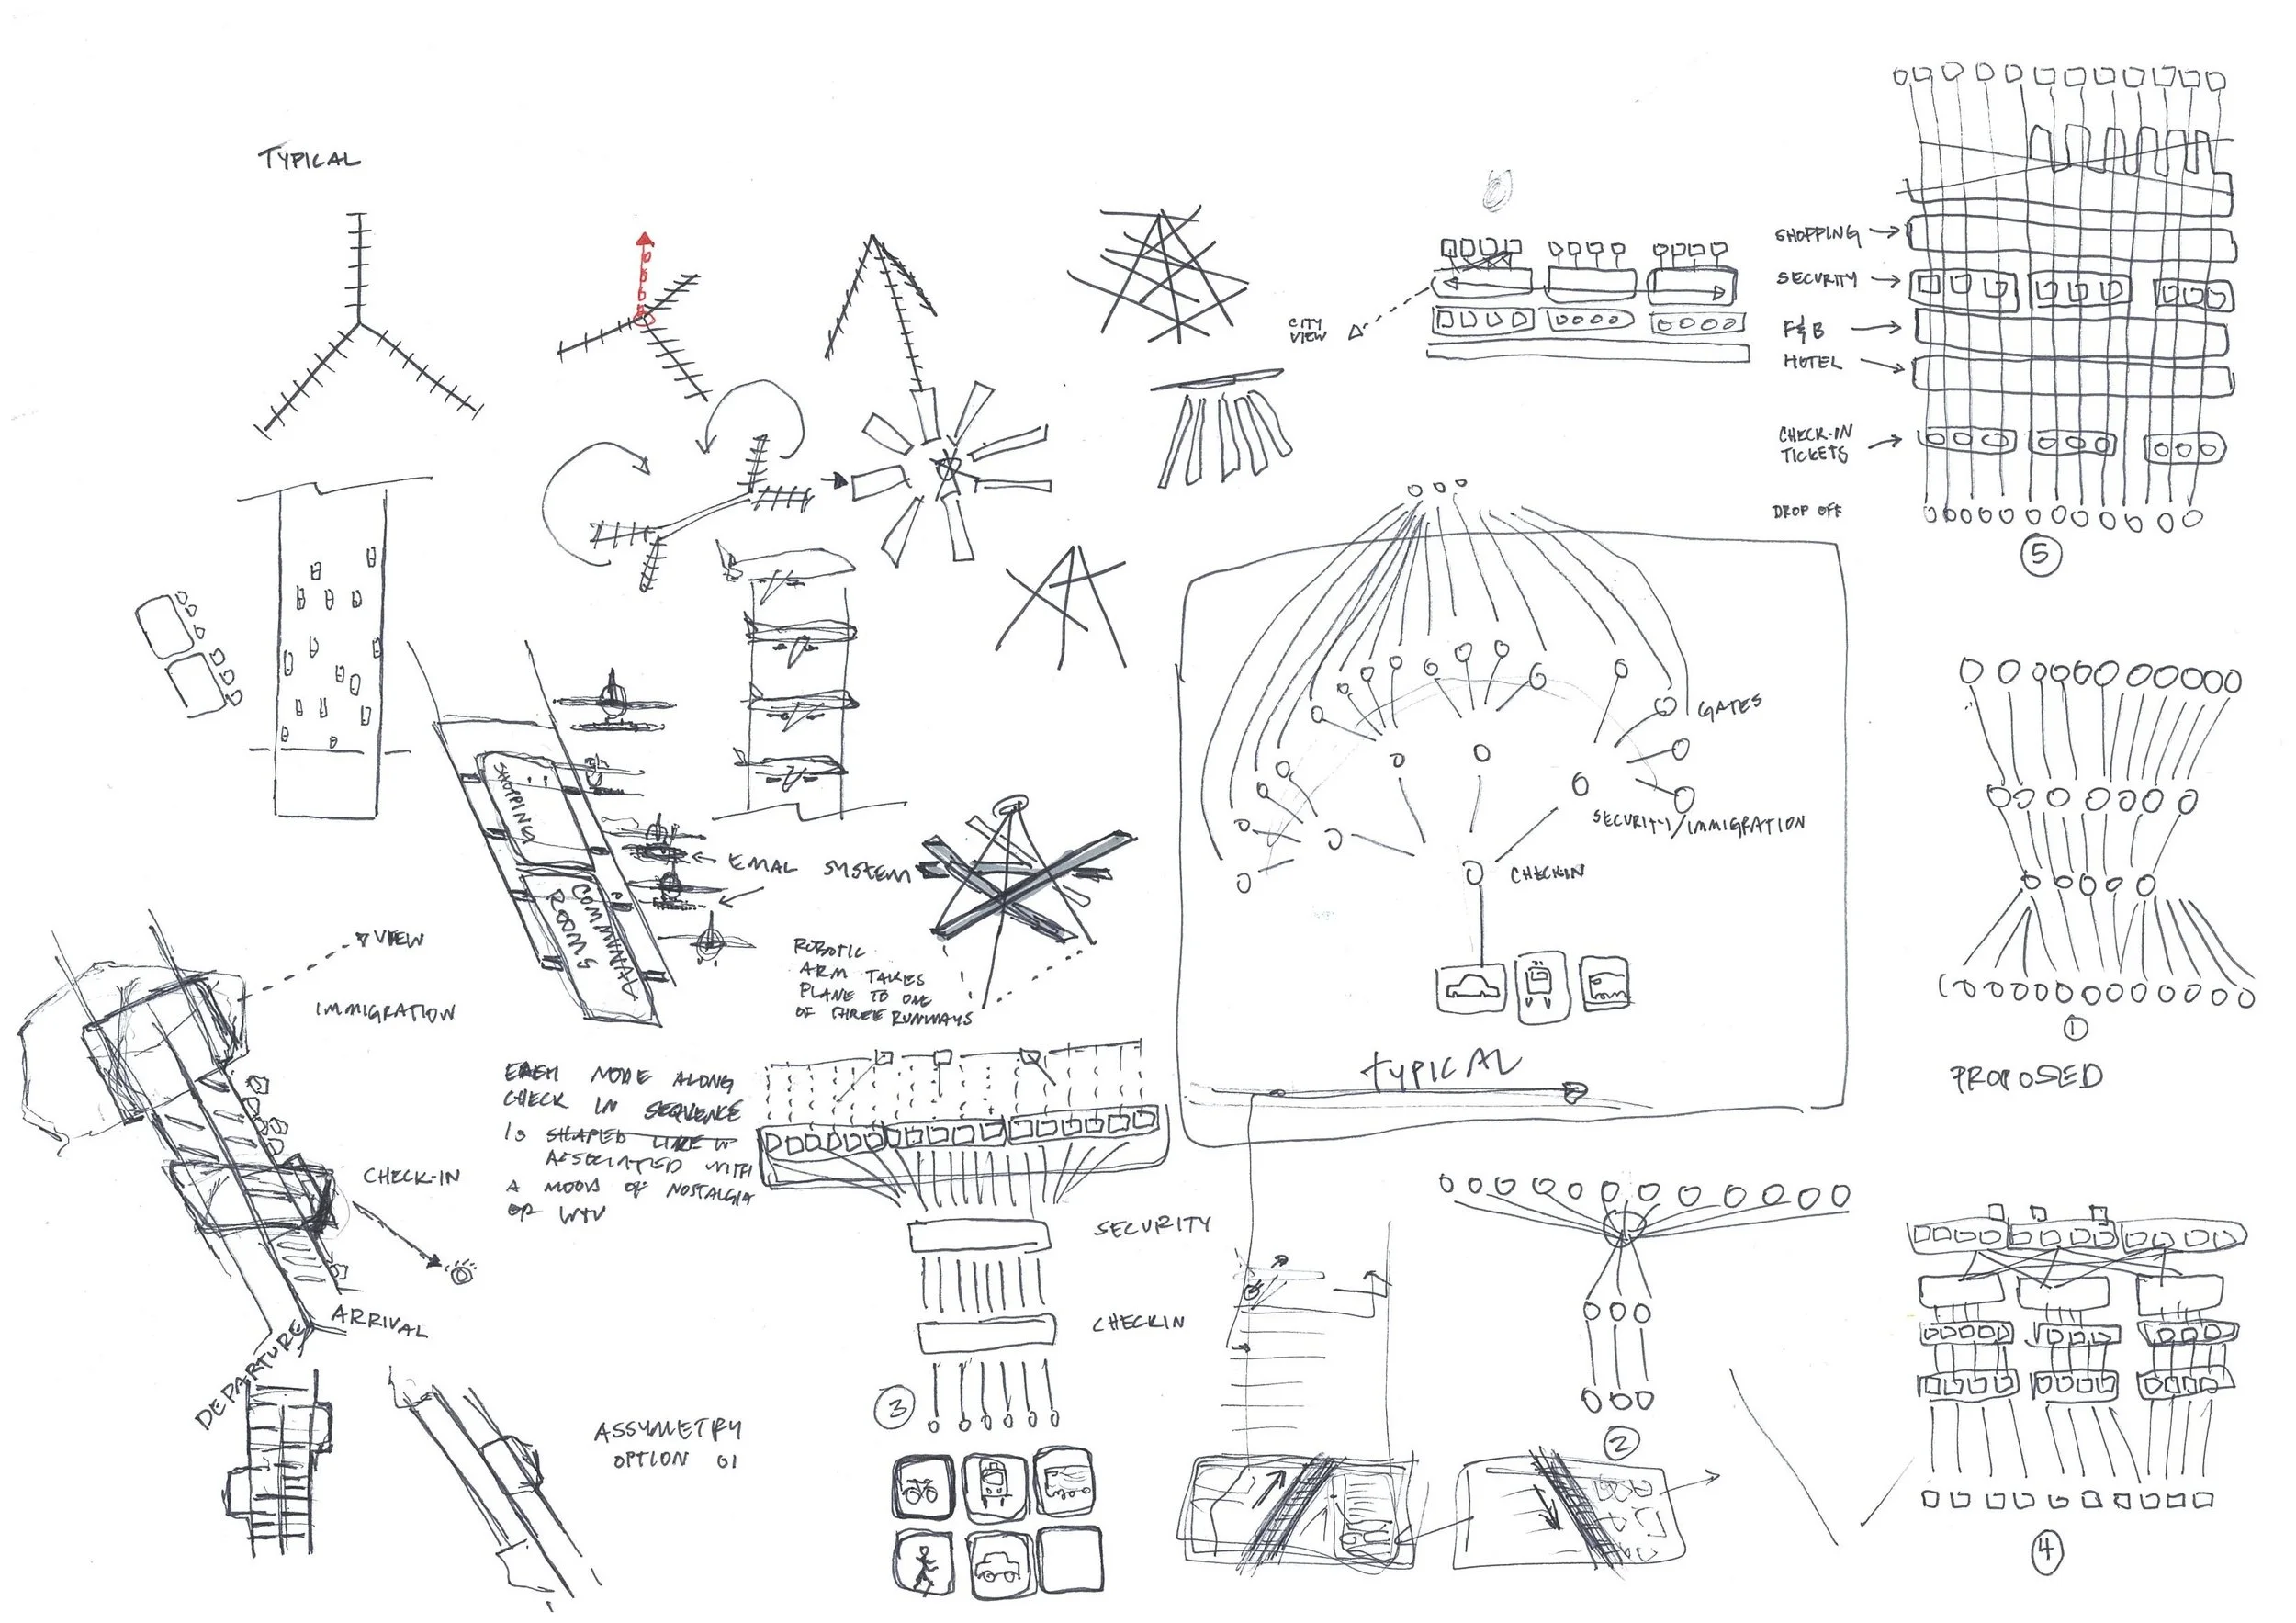 TYPICAL
SHOPPING
COMMUNAL
ROOMS
EMAL SYSTEM
ROBOTIC
ARM TAKES
PLANE TO ONE
OF THREE RUNWAYS
VIEW
IMMIGRATION
CHECK-IN
ARRIVAL
DEPARTURE
ASSYMETRY
OPTION 01
EACH NODE ALONG
CHECK IN SEQUENCE
IS SHAPED LIKE
ASSOCIATED WITH
A MOOD OF NOSTALGIA
OR WTV
SECURITY
CHECKIN
3
CITY
VIEW
GATES
SECURITY/IMMIGRATION
CHECKIN
TYPICAL
2
SHOPPING
SECURITY
F&B
HOTEL
CHECK-IN
TICKETS
DROP OFF
5
1
PROPOSED
4